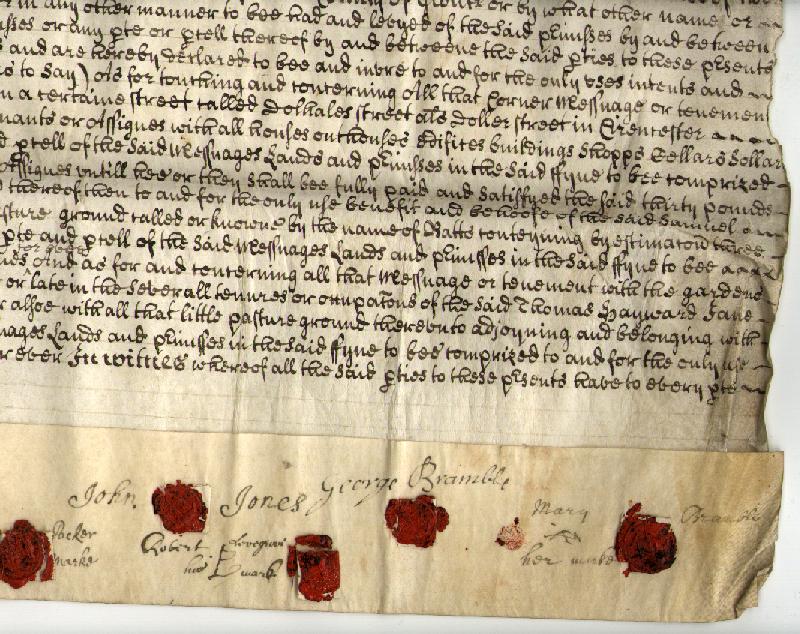 in any other manner to bee had and levyed of the said p'misses by and between
misses or any pte or p'cell thereof by and betweene the said p'ties to these p'sents
and are hereby declared to bee and inure to and for the only uses intents and
is to say) As for touching and concerning All that Corner Messuage or tenement
in a certaine street called Dollales street als Doller street in Cirencester
nants or Assignes with all houses outhouses Edifices buildings Shopps Cellars Sollars
p'cell of the said Messuages Lands and p'misses in the said ffyne to bee comprized
Assignes untill hee or they shall bee fully paid and satisfyed the said thirty pounds
thereof then to and for the only use benefit and behoofe of the said Samuel
pasture ground called or knowne by the name of Natts conteyning by estimacon three
pte and p'cell of the said Messuages Lands and p'misses in the said ffyne to bee
And as for and concerning all that Messuage or tenement with the gardens
or late in the severall tenures or occupacons of the said Thomas Hayward Jane
alsoe with all that little pasture ground thereunto adjoyning and belonging with
Messuages Lands and p'misses in the said ffyne to bee comprized to and for the only use
for ever In witnes whereof all the said p'ties to these p'sents have to every pte
John Jones George Bramble
Mary Bramble
her marke
Robert
his marke
Packer
marke